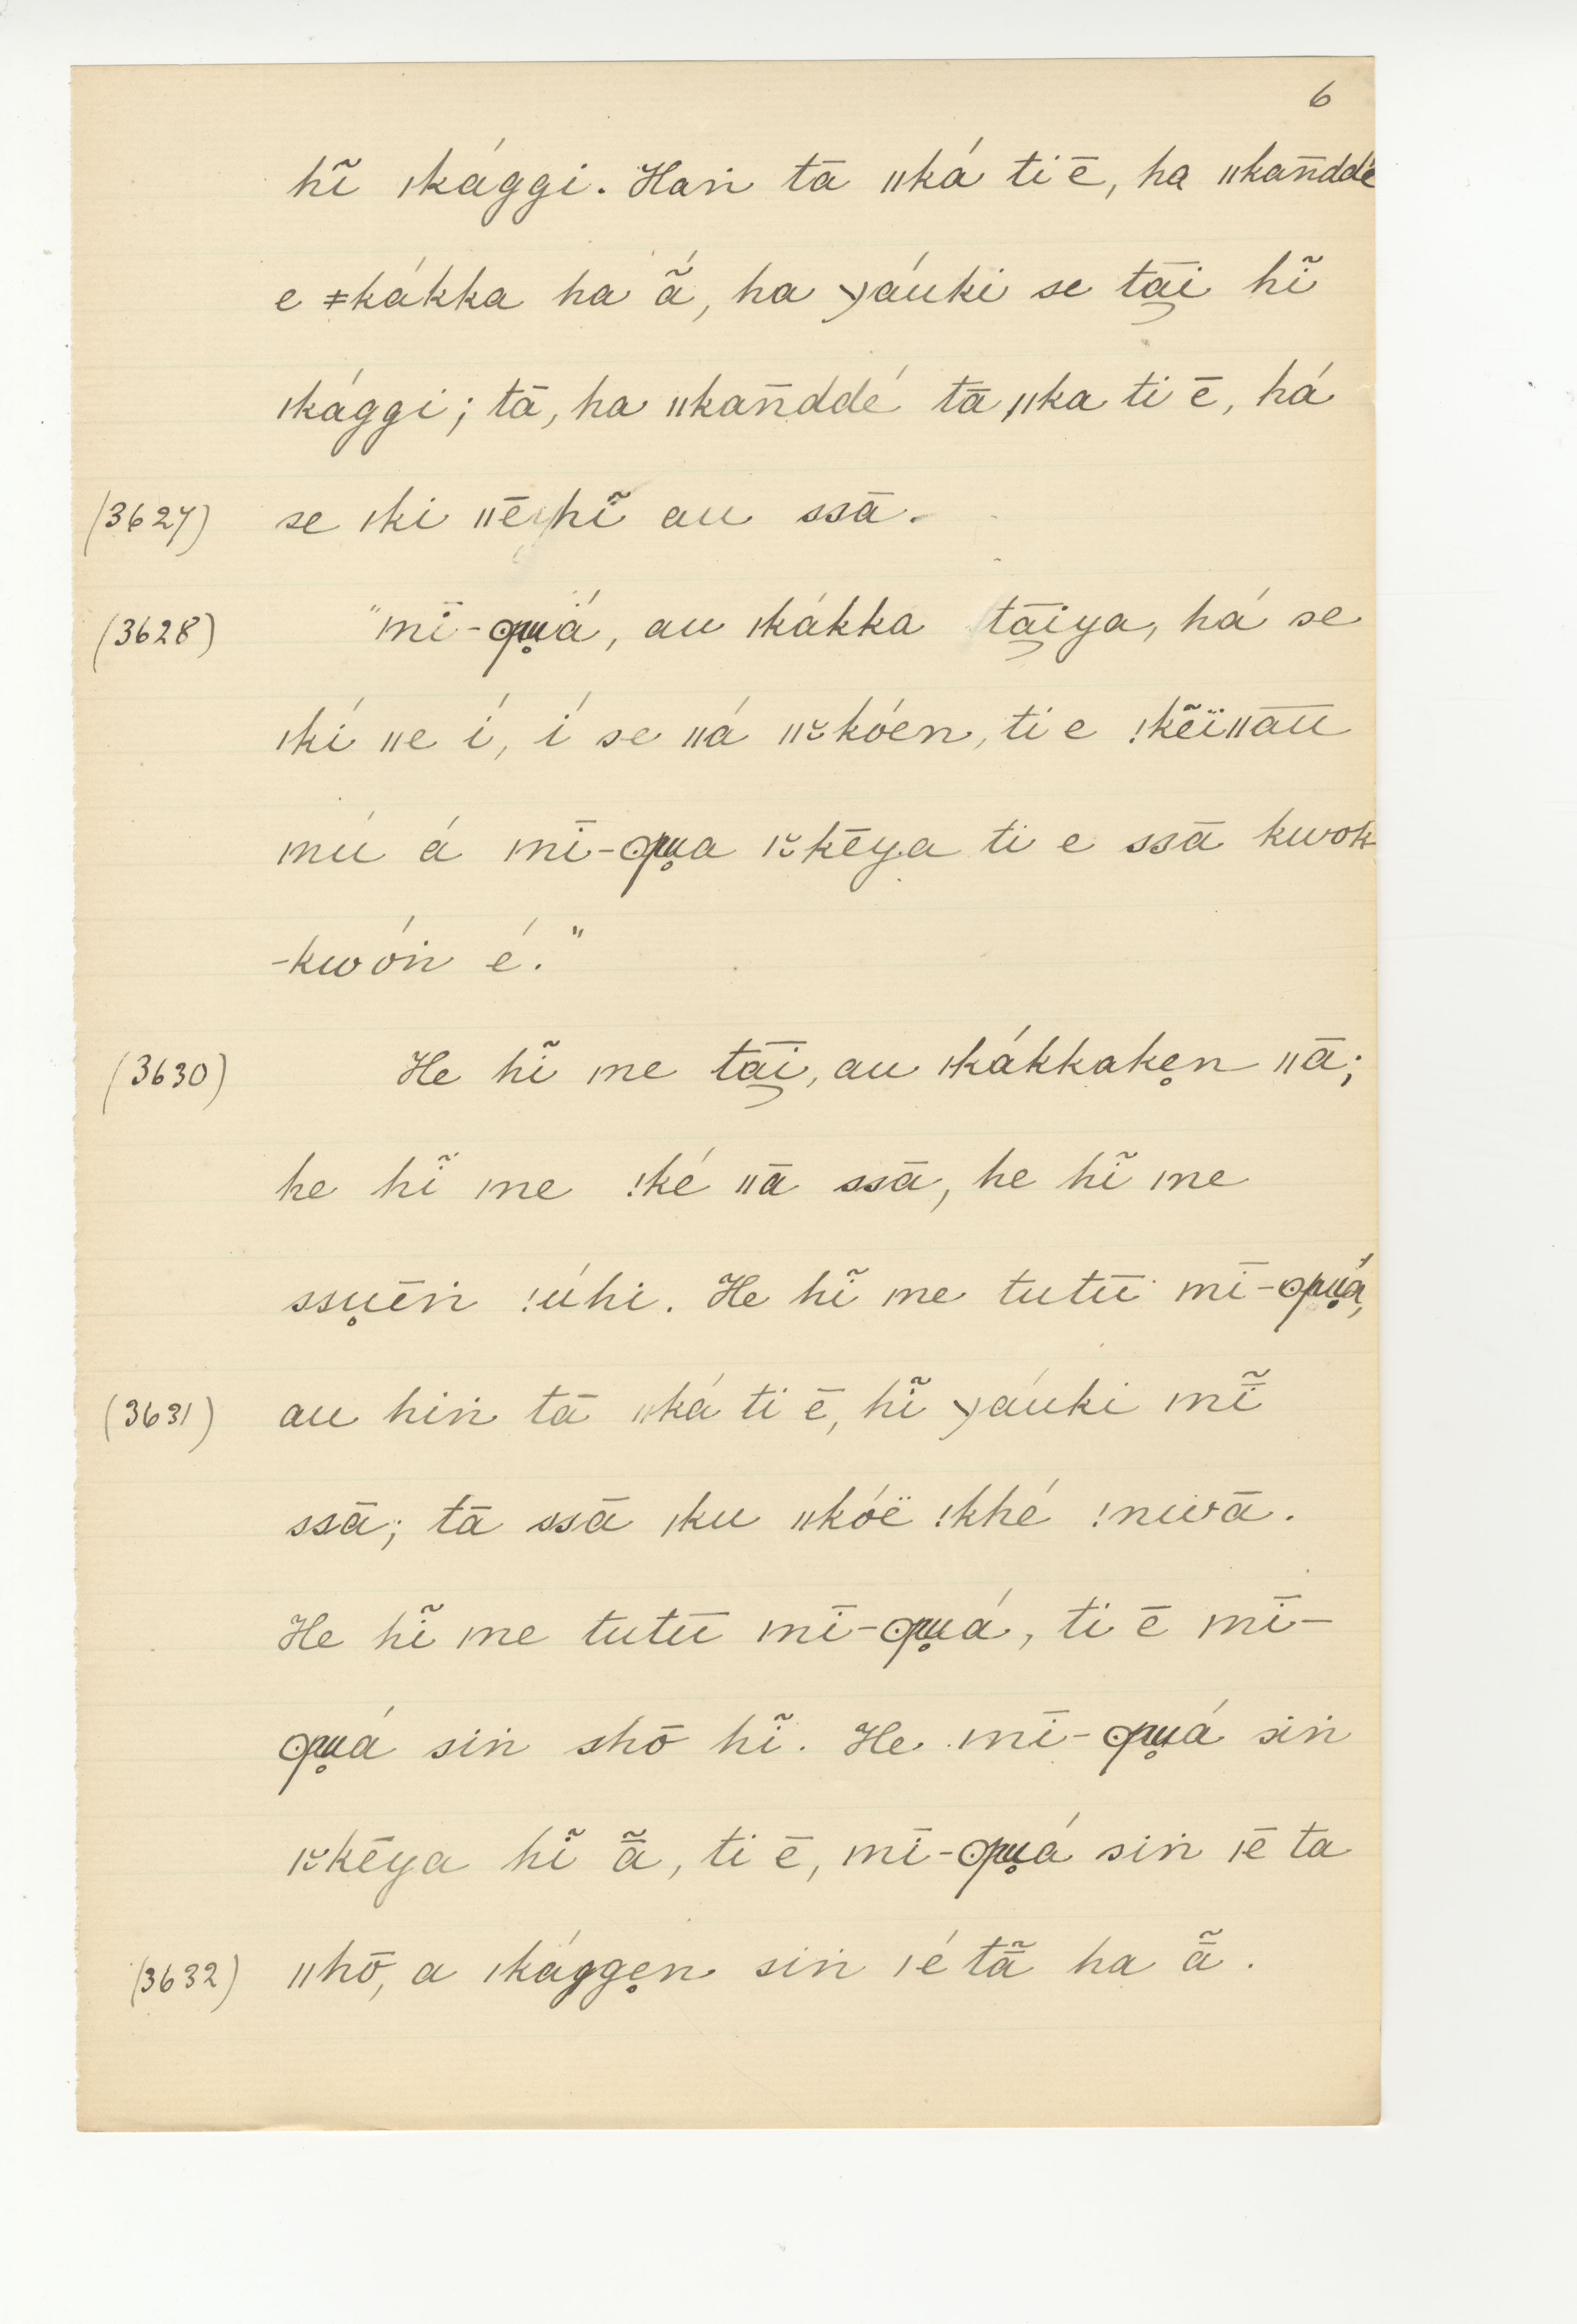 6
hĩ ǀkággi. Haṅ tā ǁká ti ē, ha ǁkan̄ddé
e ǂkákka ha ã́, ha yáuki se tā̰i hĩ
ǀkággi; tā, ha ǁkan̄ddé tā ǁka ti ē, há
(3627) se ǀki ǁē hĩ au ssā.
(3628) "mī-ʘpu̥á, au ǀkákka tā̰iya, há se
ǀkí ǁe í, í se ǁá ǁk̆óen, ti e !kẽïǁau
mú á mī-ʘpu̥a ǀk̆ēya ti e ssā kwok
-kwóṅ é."
(3630) He hĩ ǀne tā̰i, au ǀkákkake̥n ǁā;
he hĩ ǀne !ké ǁā ssā, he hĩ ǀne
ssu̥ēṅ !úhi. He hĩ ǀne tutū mī-ʘpu̥á,
(3631) au hiṅ tā ǁká ti ē, hĩ yáuki mĩ
ssā; tā ssā ǀku ǁkóë !khé !nwā.
He hĩ ǀne tutū mī-ʘpu̥á, ti ē mī-
ʘpu̥á siṅ shō hĩ. He mī-ʘpu̥á siṅ
ǀk̆ēya hĩ ã, ti ē, mī-ʘpu̥á siṅ ǀē ta
(3632) ǁhō, a ǀkágge̥n siṅ ǀé tã ha ã.